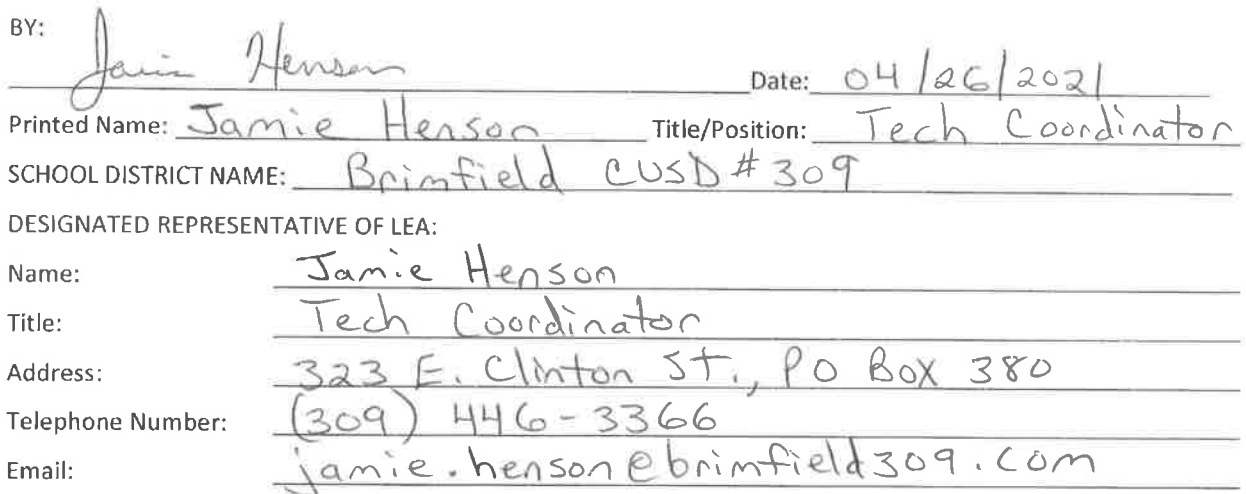 BY: Jamie Henson Date: 04/26/2021
Printed Name: Jamie Henson Title/Position: Tech Coordinator
SCHOOL DISTRICT NAME: Brimfield CUSD #309
DESIGNATED REPRESENTATIVE OF LEA:
Name: Jamie Henson
Title: Tech Coordinator
Address: 323 E. Clinton St., PO Box 380
Telephone Number: (309) 446-3366
Email: jamie.henson@brimfield309.com